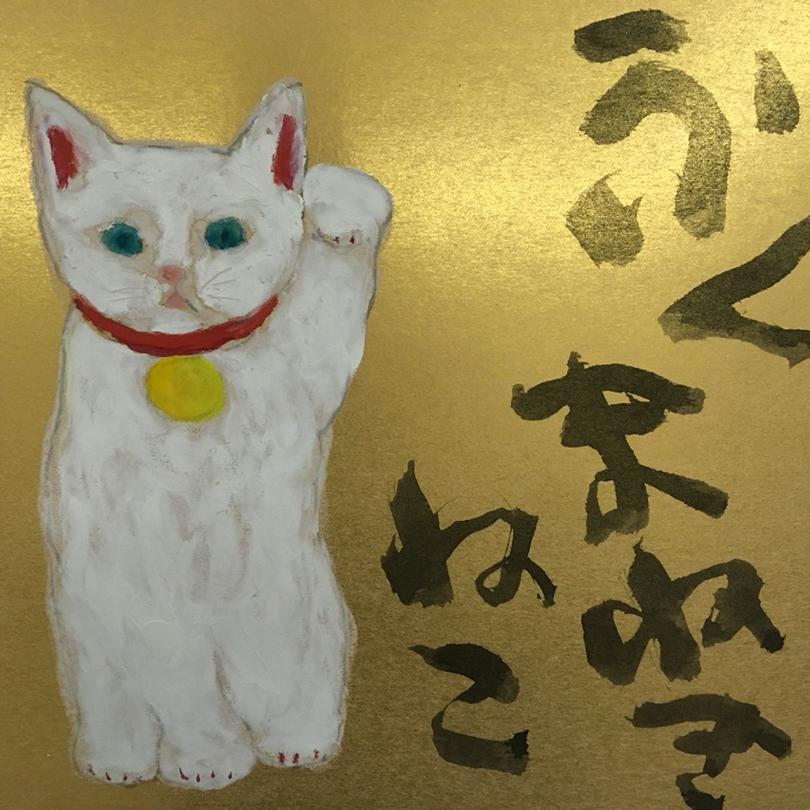 ふく
まねき
ねこ